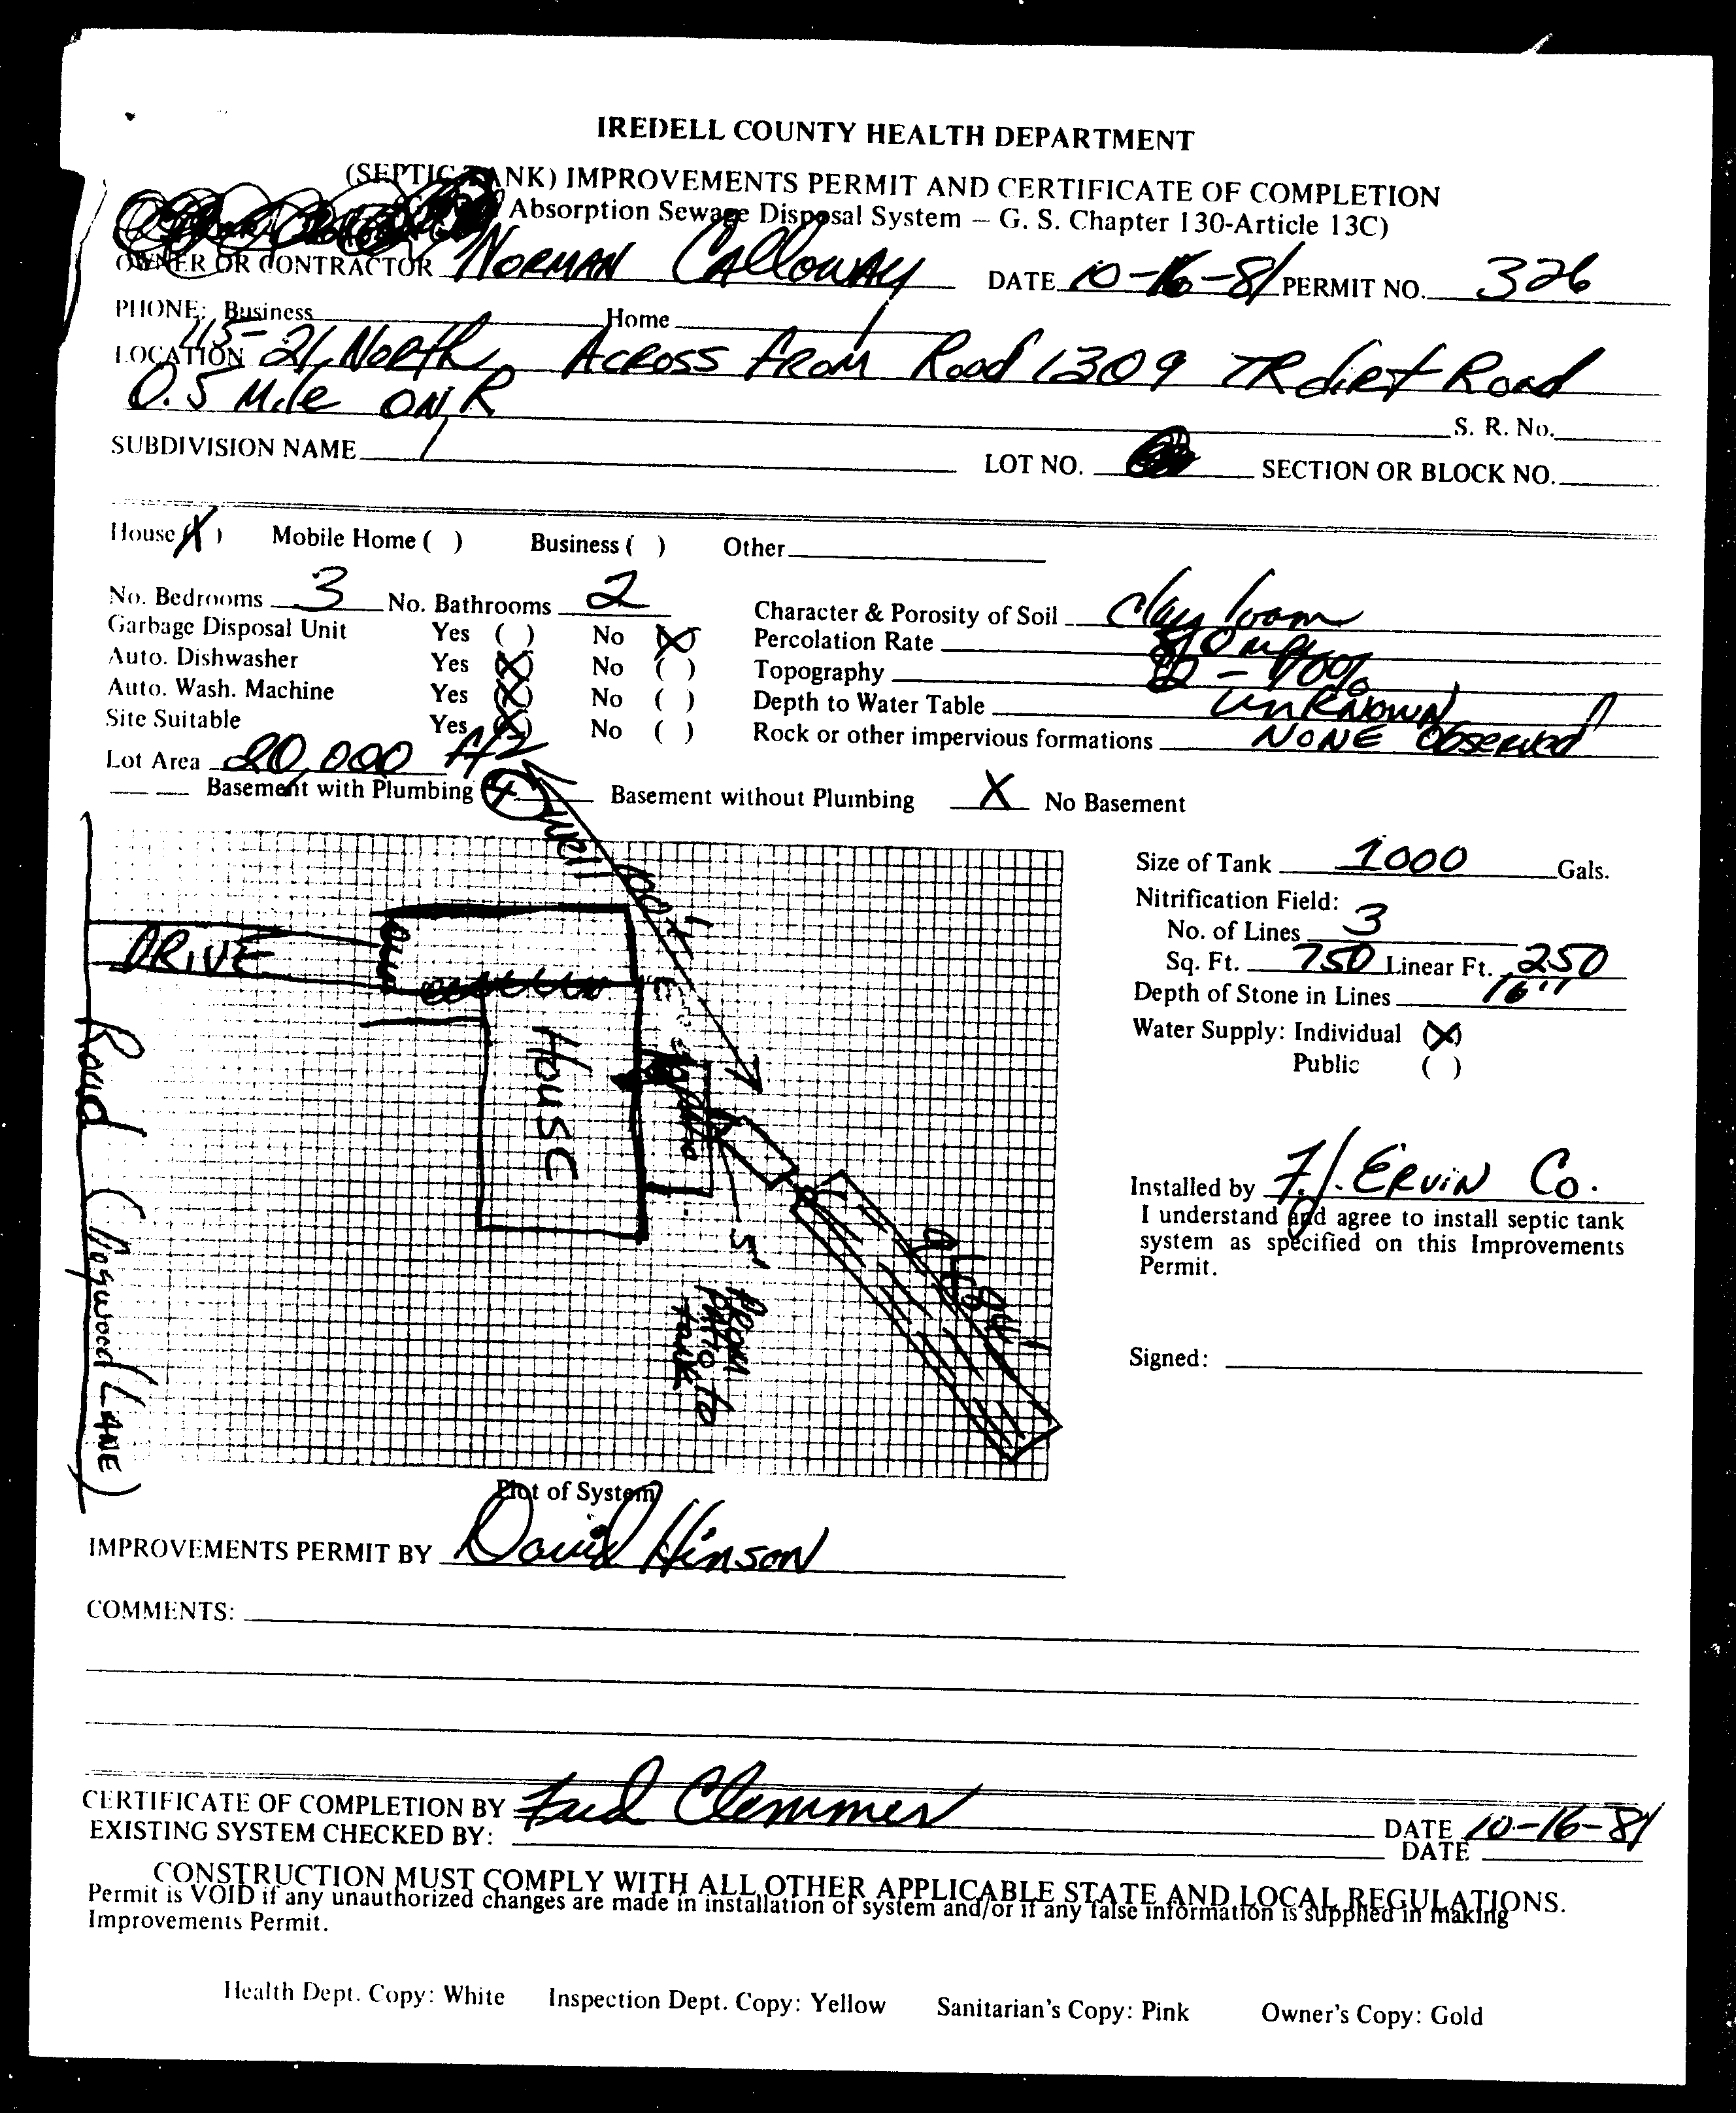 IREDELL COUNTY HEALTH DEPARTMENT
(SEPTIC TANK) IMPROVEMENTS PERMIT AND CERTIFICATE OF COMPLETION
Absorption Sewage Disposal System — G. S. Chapter 130-Article 13C)
OWNER OR CONTRACTOR NORMAN CALLOWAY DATE 10-16-81 PERMIT NO. 326
PHONE: Business Home
LOCATION 21 NORTH ACROSS FROM Road 1309 TR dirt Road
0.5 Mile ON R
S. R. No.
SUBDIVISION NAME LOT NO. SECTION OR BLOCK NO.
House (X) Mobile Home ( ) Business ( ) Other
No. Bedrooms 3 No. Bathrooms 2 Character & Porosity of Soil Clay loam
Garbage Disposal Unit Yes ( ) No (X) Percolation Rate
Auto. Dishwasher Yes (X) No ( ) Topography
Auto. Wash. Machine Yes (X) No ( ) Depth to Water Table UNKNOWN
Site Suitable Yes (X) No ( ) Rock or other impervious formations NONE Observed
Lot Area 20,000 ft2
Basement with Plumbing Basement without Plumbing X No Basement
well
100'+
DRIVE
House
Patio
5'
from
patio to
tank
Road (Dogwood LANE)
Size of Tank 1000 Gals.
Nitrification Field:
No. of Lines 3
Sq. Ft. 750 Linear Ft. 250
Depth of Stone in Lines 16"
Water Supply: Individual (X)
Public ( )
Installed by F.J. ERVIN Co.
I understand and agree to install septic tank
system as specified on this Improvements
Permit.
Signed:
Plot of System
IMPROVEMENTS PERMIT BY David Hinson
COMMENTS:
CERTIFICATE OF COMPLETION BY Fred Clemmer DATE 10-16-81
EXISTING SYSTEM CHECKED BY: DATE
CONSTRUCTION MUST COMPLY WITH ALL OTHER APPLICABLE STATE AND LOCAL REGULATIONS.
Permit is VOID if any unauthorized changes are made in installation of system and/or if any false information is supplied in making
Improvements Permit.
Health Dept. Copy: White Inspection Dept. Copy: Yellow Sanitarian's Copy: Pink Owner's Copy: Gold